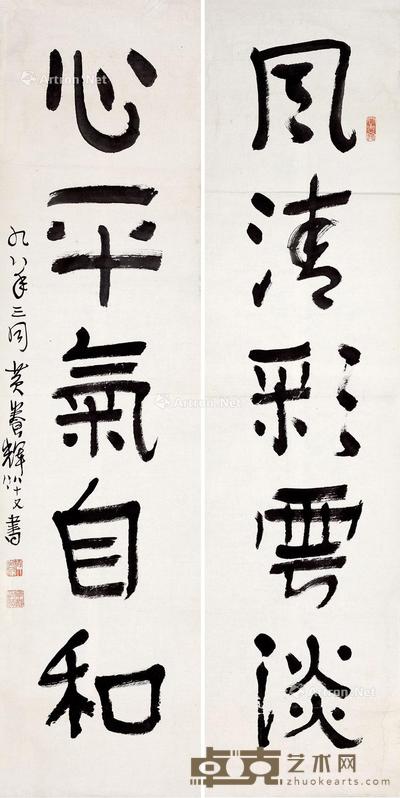 風清彩雲淡
心平氣自和
九八年三月 黄養輝八十又 書
Artron.Net
Artron.Net
Artron.Net
Artron.Net
卓克艺术网
zhuokearts.com